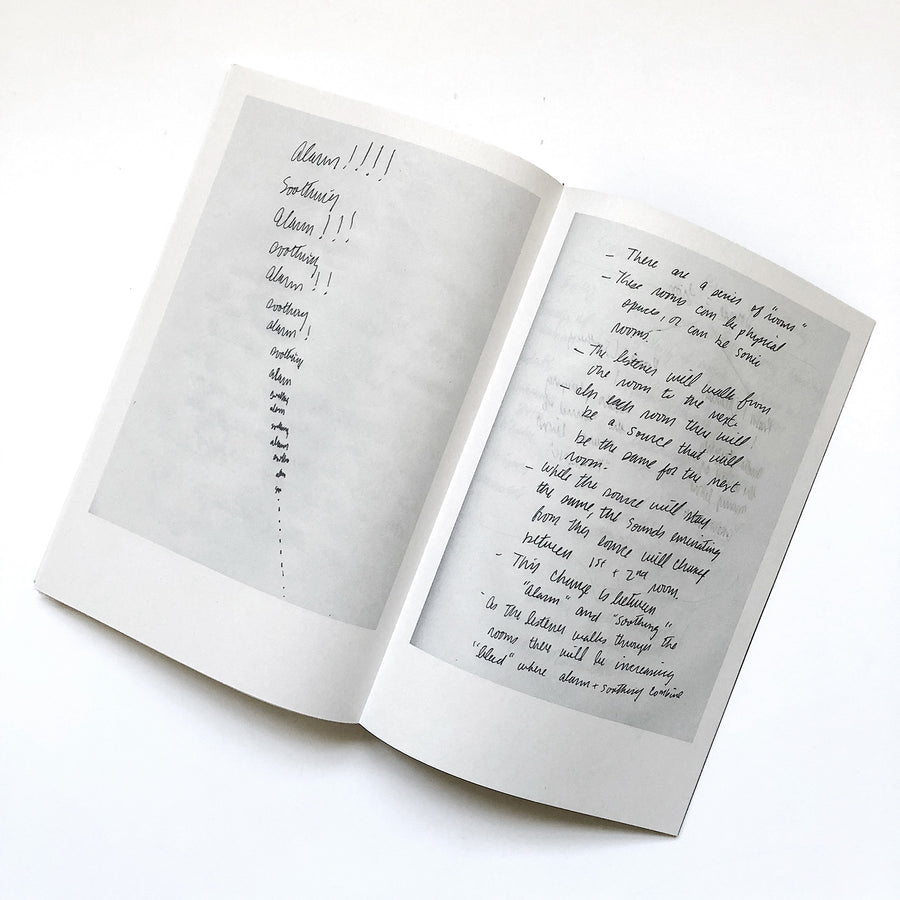 Alarm!!!!
Soothing
Alarm!!!
soothing
Alarm!!
soothing
alarm!
soothing
alarm
soothing
alarm
soothing
alarm
alm
so
- There are a series of "rooms"
- These rooms can be physical
spaces, or can be sonic
rooms.
- The listener will walk from
one room to the next.
- in each room there will
be a source that will
be the same for the next
room.
- while the source will stay
the same, the sounds emanating
from this source will change
between 1st + 2nd room.
- This change is between
"alarm" and "soothing"
- as the listener walks through the
rooms there will be increasing
"bleed" where alarm + soothing combine